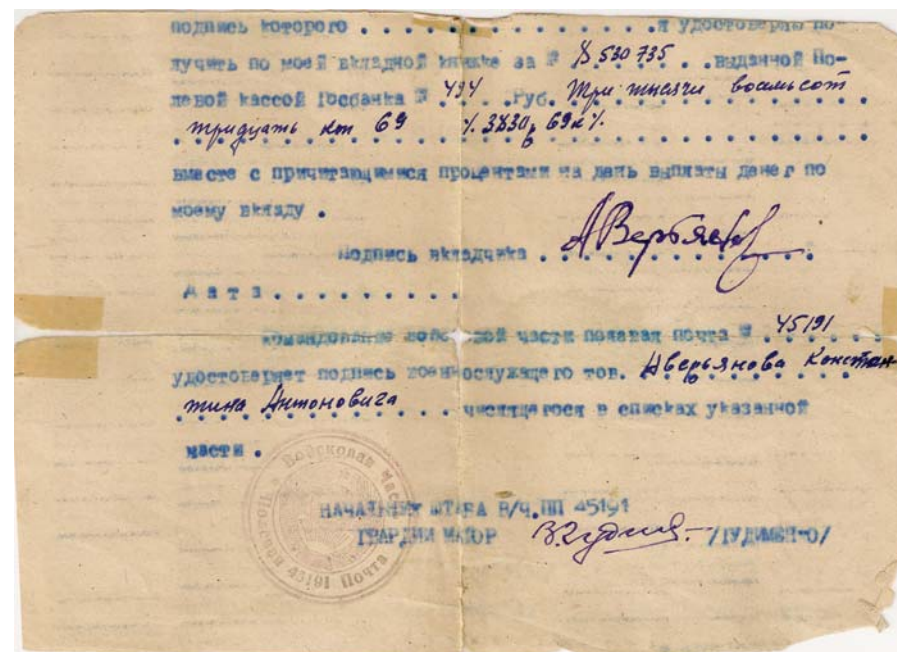 подпись которого . . . . . . . . . . . . . . . . я удостоверяю по-
лучить по моей вкладной книжке за № 530735 . . выданной По-
левой кассой Госбанка № 494 . . Руб. Три тысячи восемьсот
тридцать коп 69 /. 3830р 69к /.
вместе с причитающимися процентами на день выплаты денег по
моему вкладу .
Подпись вкладчика . АВерьянов
Дата . . . . . . . . .
Командование войсковой части полевая почта № 45191
удостоверяет подпись военнослужащего тов. Аверьянова Констан-
тина Антоновича . . . . числящегося в списках указанной
части .
НАЧАЛЬНИК ШТАБА В/Ч.ПП 45191
ГВАРДИИ МАЙОР /ГУДИМЕНКО/
Войсковая Часть Полевая 45191 Почта